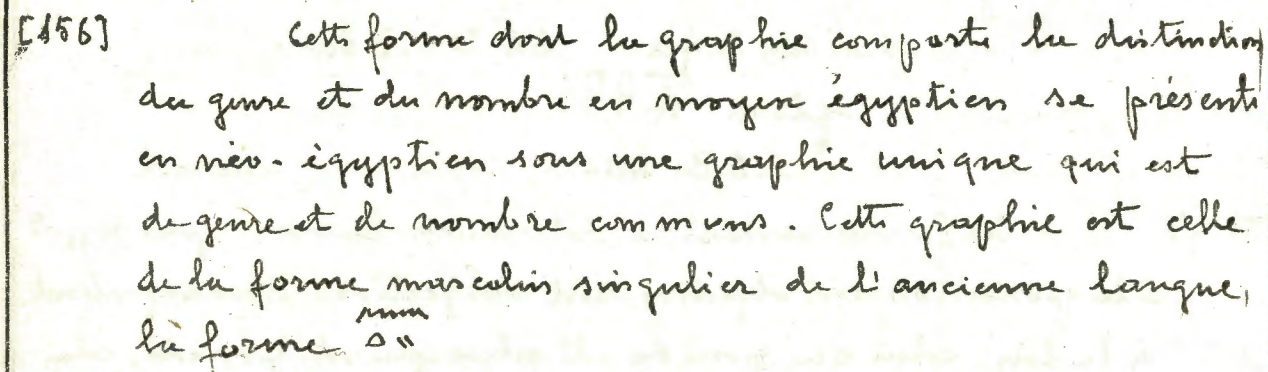 [156] Cette forme dont la graphie comporte la distinction
du genre et du nombre en moyen égyptien se présente
en néo-égyptien sous une graphie unique qui est
de genre et de nombre communs. Cette graphie est celle
de la forme masculin singulier de l'ancienne langue,
la forme